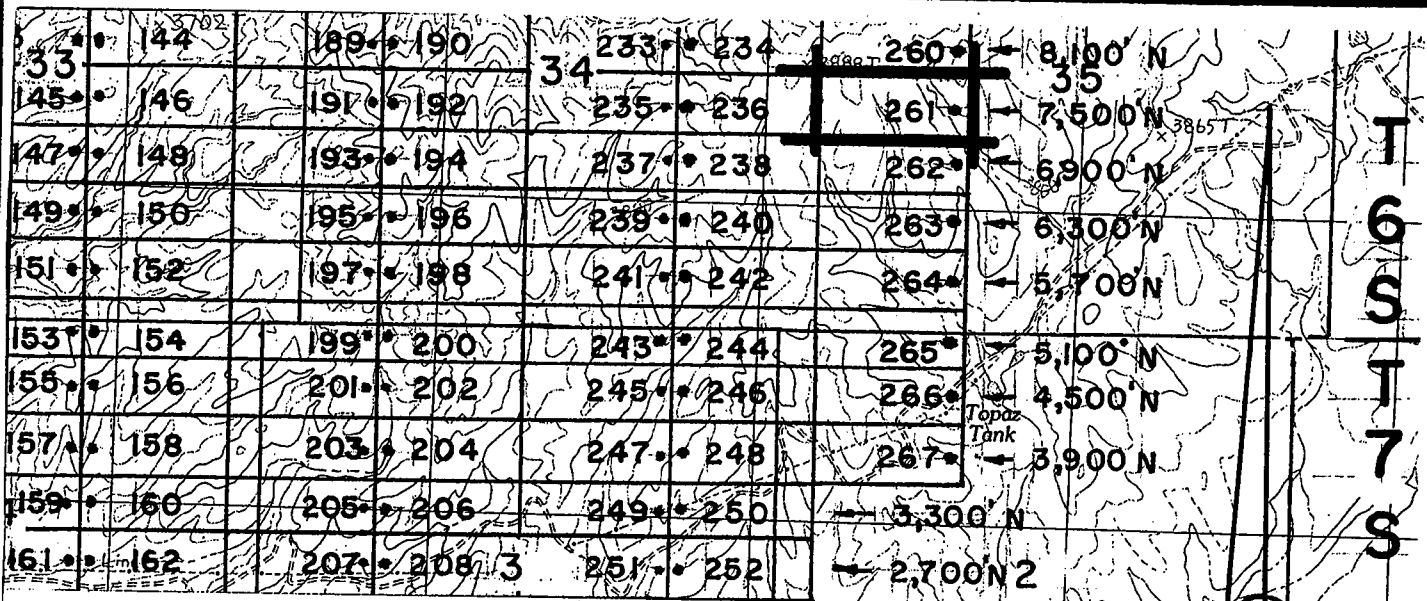 3702
144 189 190 233 234 260 8,100' N
33 34 3988T 35
145 146 191 192 235 236 261 7,500' N
3865T
147 148 193 194 237 238 262 6,900' N
149 150 195 196 239 240 263 6,300' N
151 152 197 198 241 242 264 5,700' N
153 154 199 200 243 244 265 5,100' N
155 156 201 202 245 246 266 4,500' N
Topaz
Tank
157 158 203 204 247 248 267 3,900' N
159 160 205 206 249 250 3,300' N
161 162 207 208 3 251 252 2,700' N 2
T
6
S
T
7
S